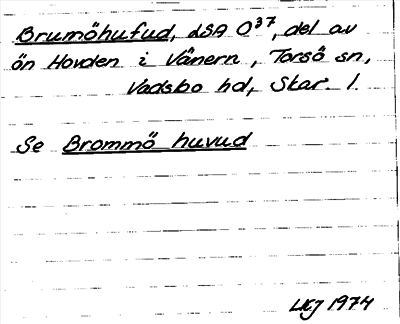 Brumöhufud, LSA O³⁷, del av
ön Hovden i Vänern, Torsö sn,
Vadsbo hd, Skar. l.
Se Brommö huvud
LKJ 1974